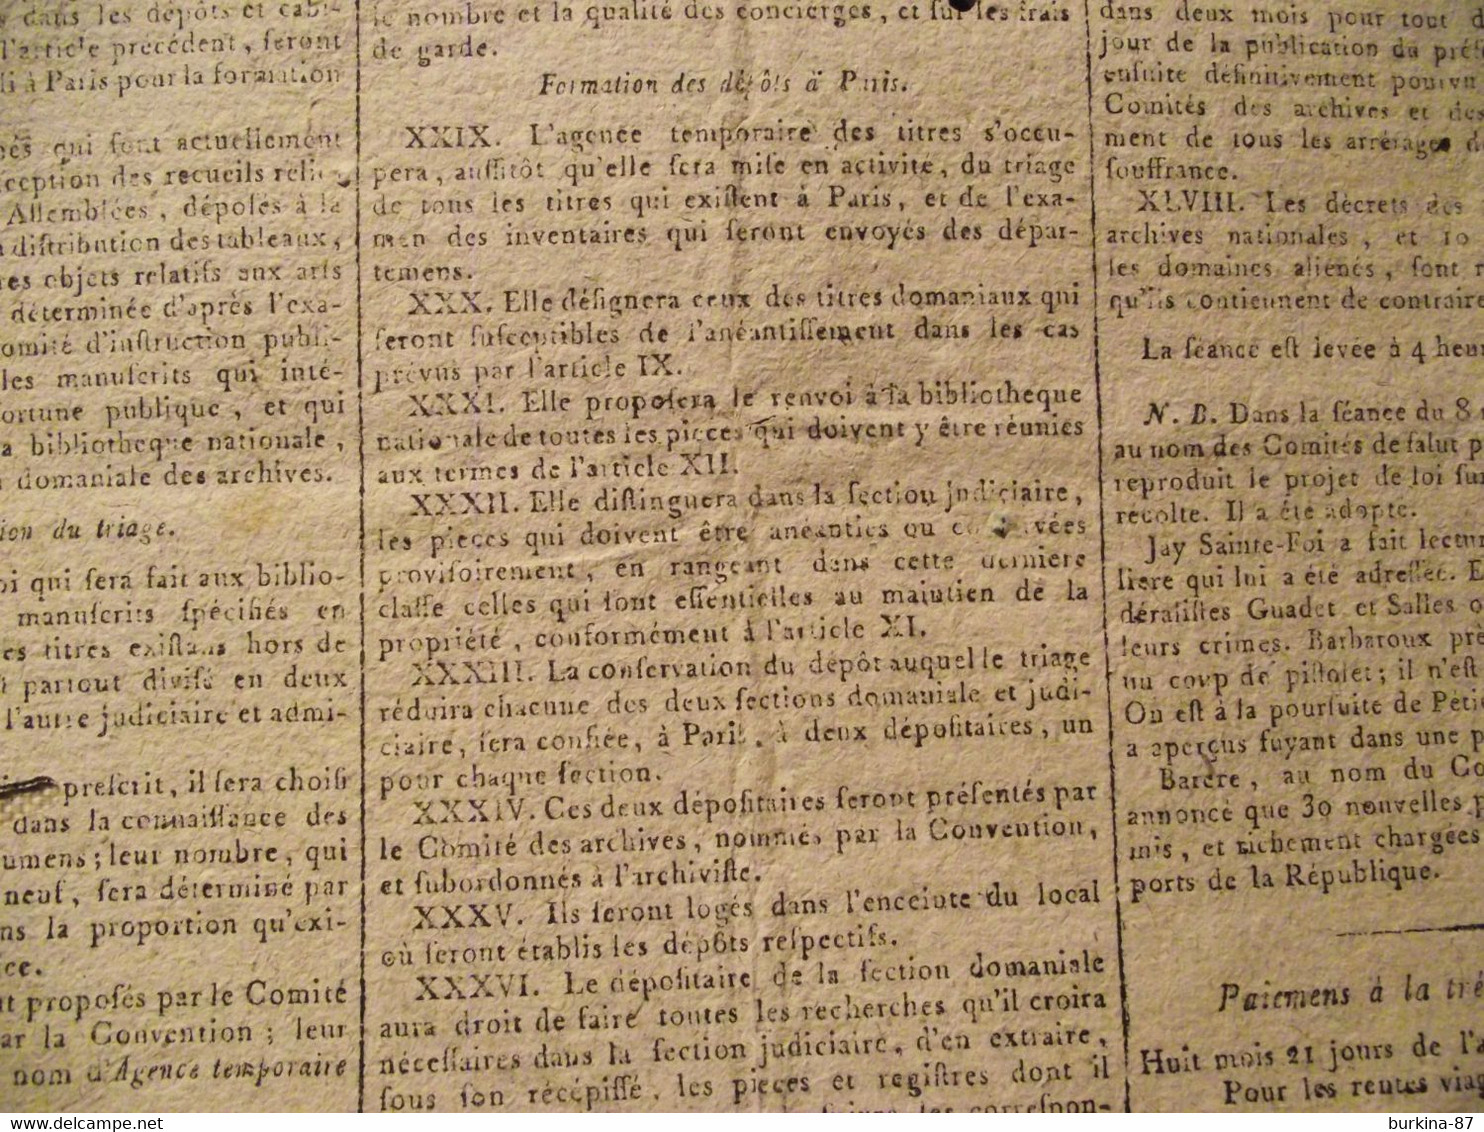 dans les dépôts et cabi-
l'article précédent, seront
à Paris pour la formation
qui sont actuellement
ception des recueils
Assemblées, déposés à la
distribution des tableaux,
res objets relatifs aux arts
déterminée d'après l'exa-
omité d'instruction publi-
les manuscrits qui inté-
fortune publique, et qui
a bibliotheque nationale,
domaniale des archives.
ion du triage.
oi qui sera fait aux biblio-
manuscrits spécifiés en
es titres existans hors de
partout divisé en deux
l'autre judiciaire et admi-
prescrit, il sera choisi
dans la connaissance des
umens; leur nombre, qui
neuf, sera déterminé par
ns la proportion qu'exi-
ce.
t proposés par le Comité
ar la Convention; leur
nom d'Agence temporaire
le nombre et la qualité des concierges, et sur les frais
de garde.
Formation des dépôts à Paris.
XXIX. L'agence temporaire des titres s'occu-
pera, aussitôt qu'elle sera mise en activité, du triage
de tous les titres qui existent à Paris, et de l'exa-
men des inventaires qui seront envoyés des dépar-
temens.
XXX. Elle désignera ceux des titres domaniaux qui
seront susceptibles de l'anéantissement dans les cas
prévus par l'article IX.
XXXI. Elle proposera le renvoi à la bibliotheque
nationale de toutes les pieces qui doivent y être réunies
aux termes de l'article XII.
XXXII. Elle distinguera dans la section judiciaire,
les pieces qui doivent être anéanties ou conservées
provisoirement, en rangeant dans cette derniere
classe celles qui sont essentielles au maintien de la
propriété, conformément à l'article XI.
XXXIII. La conservation du dépôt auquel le triage
réduira chacune des deux sections domaniale et judi-
ciaire, sera confiée, à Paris, à deux dépositaires, un
pour chaque section.
XXXIV. Ces deux dépositaires seront présentés par
le Comité des archives, nommés par la Convention,
et subordonnés à l'archiviste.
XXXV. Ils seront logés dans l'enceinte du local
où seront établis les dépôts respectifs.
XXXVI. Le dépositaire de la section domaniale
aura droit de faire toutes les recherches qu'il croira
nécessaires dans la section judiciaire, d'en extraire,
sous son récépissé, les pieces et registres dont il
les correspon-
dans deux mois pour tout d
jour de la publication du prés
ensuite définitivement pourvu
Comités des archives et des
ment de tous les arrérages d
souffrance.
XLVIII. Les décrets des
archives nationales, et 10
les domaines aliénés, sont r
qu'ils contiennent de contraire
La séance est levée à 4 heur
N. B. Dans la séance du 8
au nom des Comités de salut p
reproduit le projet de loi sur
récolte. Il a été adopté.
Jay Sainte-Foi a fait lectur
liere qui lui a été adressée. E
déralistes Guadet et Salles o
leurs crimes. Barbaroux prè
un coup de pistolet; il n'est
On est à la poursuite de Péti
a aperçus fuyant dans une p
Barère, au nom du Co
annoncé que 30 nouvelles p
mis, et richement chargées
ports de la République.
Paiemens à la tré
Huit mois 21 jours de l'a
Pour les rentes viag
burkina-87